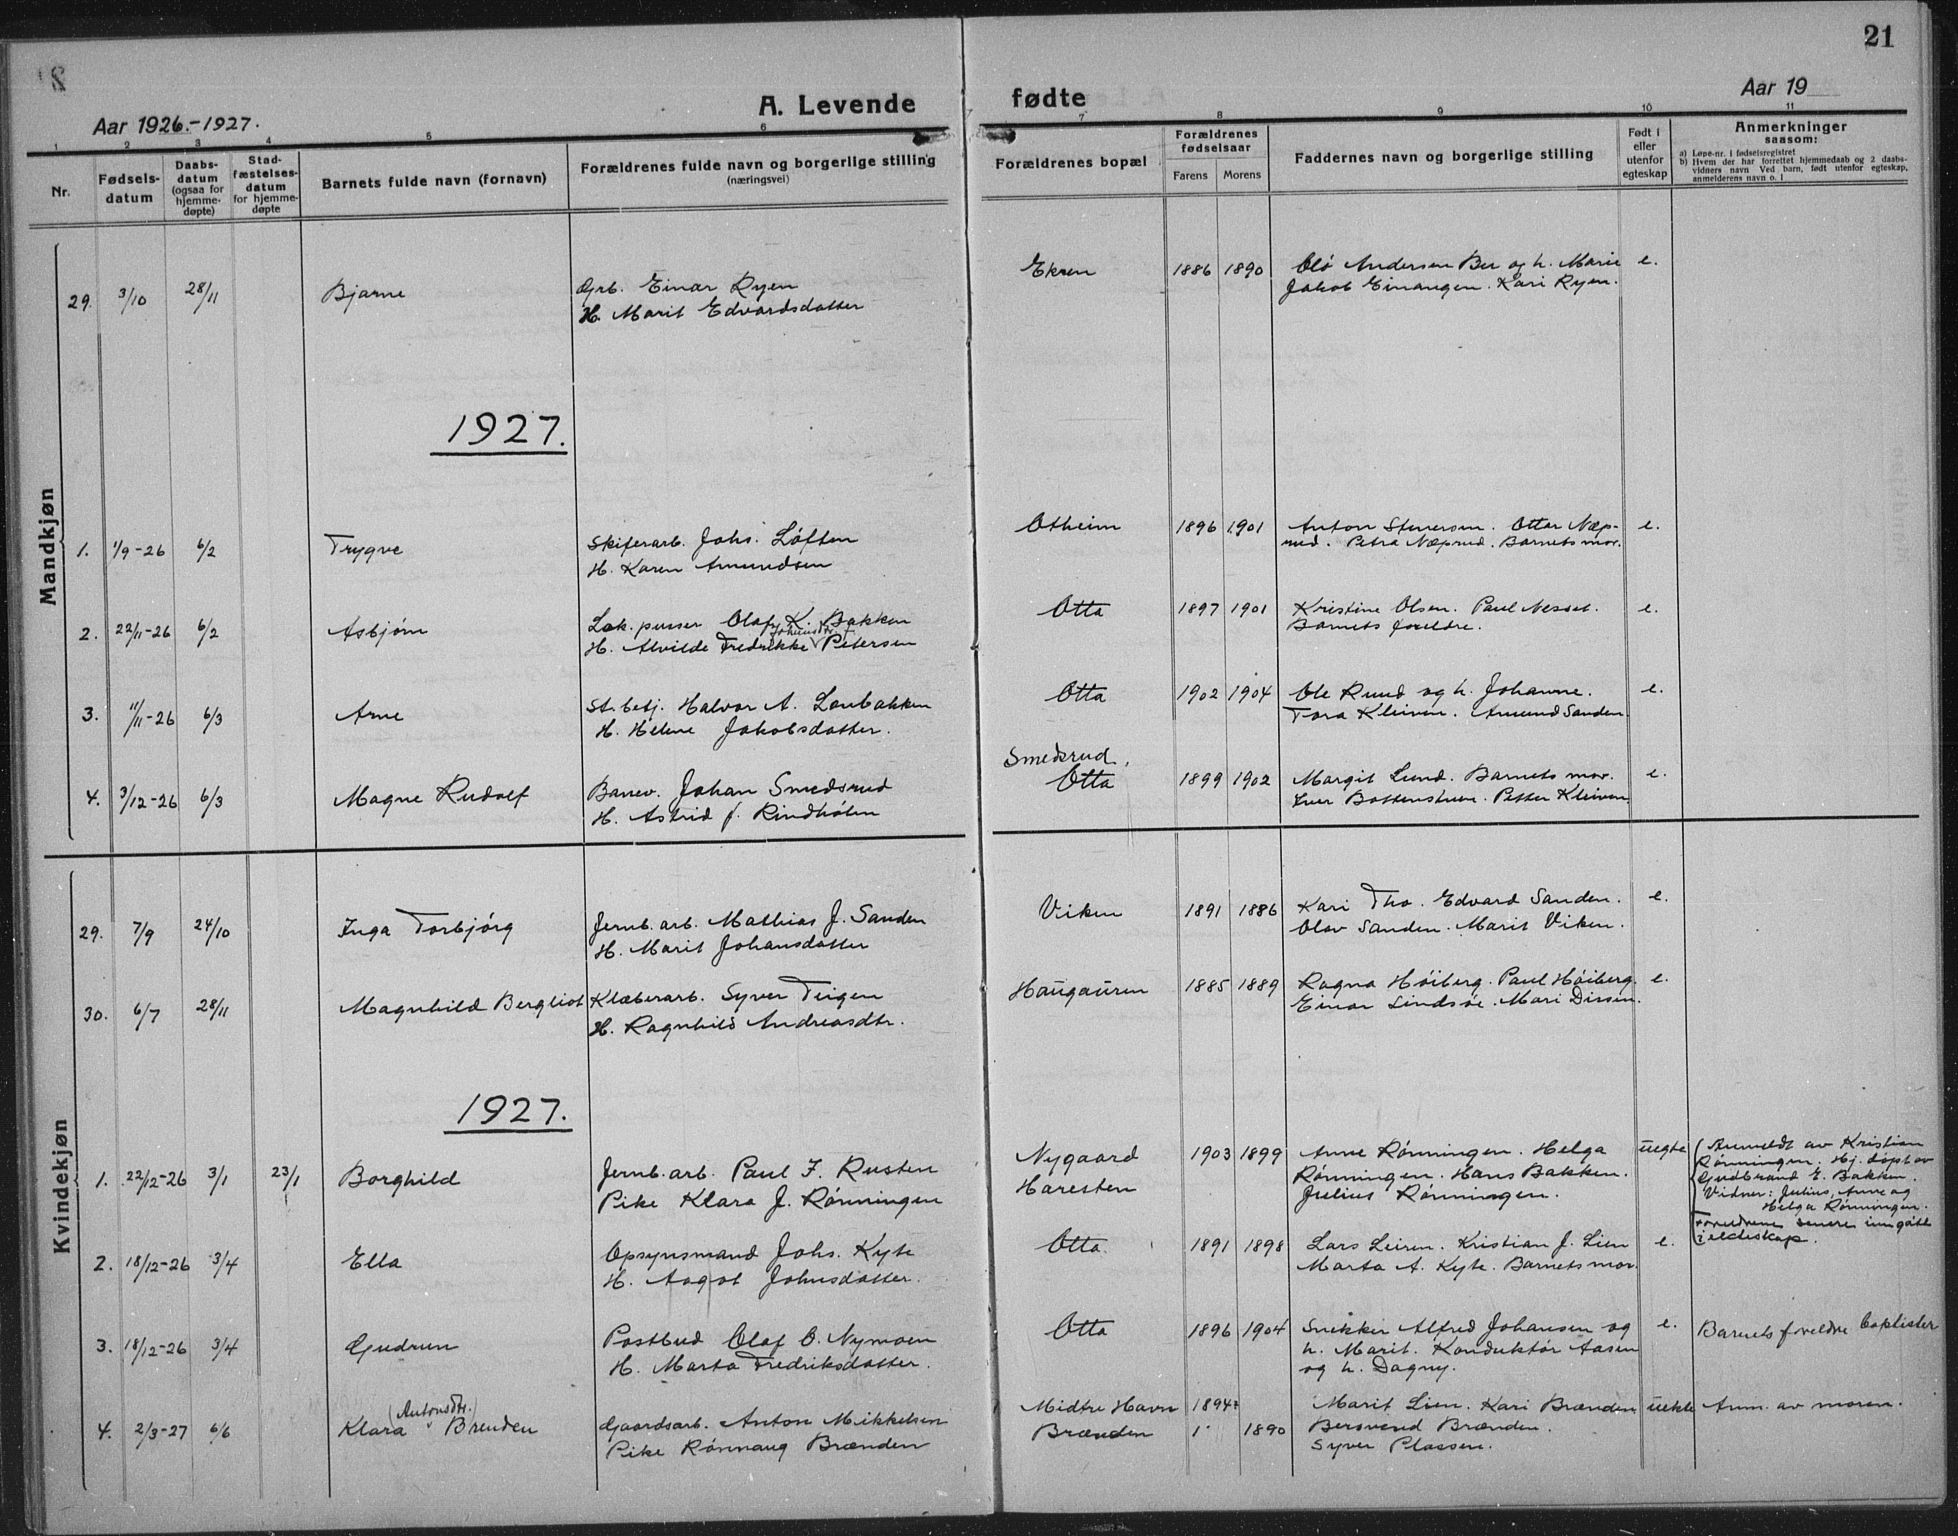 21
Aar 1926.-1927.
A. Levende
fødte
Aar 19
1 2 3 4 5 6
7 8 9 10 11
Nr.
Fødsels-
datum
Daabs-
datum
(ogsaa for
hjemme-
døpte)
Stad-
fæstelses-
datum
for hjemme-
døpte
Barnets fulde navn (fornavn)
Forældrenes fulde navn og borgerlige stilling
(næringsvei)
Forældrenes bopæl
Forældrenes
fødselsaar
Farens Morens
Faddernes navn og borgerlige stilling
Født i
eller
utenfor
egteskap
Anmerkninger
saasom:
a) Løpe-nr. i fødselsregistret
b) Hvem der har forrettet hjemmedaab og 2 daabs-
vidners navn Ved barn, født utenfor egteskap,
anmelderens navn o. l
Mandkjøn
29. 3/10 28/11 Bjarne
Grb. Einar Ryen
H. Marit Edvardsdatter
Ekren 1886 1890
Olö Andersen Bu og h. Marie
Jakob Einangen. Kari Ryen.
e.
1927.
1. 1/9-26 6/2 Trygve
Skiferarb. Johs. Løften
H. Karen Amundsen
Otheim 1896 1901
Anton Stenersen. Ottar Næp-
rud. Petra Næprud. Barnets mor.
e.
2. 22/11-26 6/2 Asbjørn
Lok.pusser Olaf K. Bakken
Johansdtr.
H. Alvilde Fredrikke Petersen
Otta 1897 1901
Kristine Olsen. Paul Nesset.
Barnets foreldre.
e.
3. 11/11-26 6/3 Arne
St.betj. Halvor A. Loubakken
H. Helene Jakobsdatter.
Otta 1902 1904
Ole Ruud og h. Johanne.
Tora Kleiven. Amund Sanden.
e.
4. 3/12-26 6/3 Magne Rudolf
Banev. Johan Smedsrud
H. Astrid f. Rindhölen
Smedsrud,
Otta 1899 1902
Margit Lund. Barnets mor.
Iver Bottenstuen. Petter Kleiven
e.
Kvindekjøn
29. 7/9 24/10 Inga Torbjørg
Jernb.arb. Mathias J. Sanden
H. Marit Johansdatter
Viken 1891 1886
Kari Tho. Edvard Sanden.
Olav Sanden. Marit Viken.
e.
30. 6/7 28/11 Magnhild Bergliot
Klæberarb. Syver Teigen
H. Ragnhild Andreasdtr.
Haugauren 1885 1889
Ragna Høiberg. Paul Høiberg.
Einar Lindsöe. Mari Dirsen.
e.
1927.
1. 22/12-26 3/1 23/1 Borghild
Jernb.arb. Paul F. Rusten
Pike Klara J. Rønningen
Nygaard
Haresten
1903 1899
Anne Rønningen. Helga
Rønningen. Hans Bakken.
Julius Rønningen.
uegte
Anmeldt av Kristian
Rønningen. Hj. døpt av
Gudbrand E. Bakken.
Vidner: Julius, Anne og
Helga Rønningen.
Foreldrene senere inngått
i ekteskap.
2. 18/12-26 3/4 Ella
Opsynsmand Johs. Kyte
H. Aagot Johnsdatter.
Otta. 1891 1898
Lars Leiren. Kristian J. Lien
Marta A. Kyte. Barnets mor
e.
3. 18/12-26 3/4 Gudrun
Postbud Olaf O. Nymoen
H. Marta Fredriksdatter.
Otta 1896 1904
Snikker Alfred Johansen og
h. Marit. Konduktør Aasen
og h. Dagny.
e.
Barnets foreldre baptister
4. 2/3-27 6/6
(Antonsdtr.)
Klara Brenden
Gaardsarb. Anton Mikkelsen
Pike Rønnaug Brænden
Midtre Havn 1894
Brænden 1890
Marit Lien. Kari Brænden
Bersvend Brænden.
Syver Plassen.
uekte
Anm. av moren.